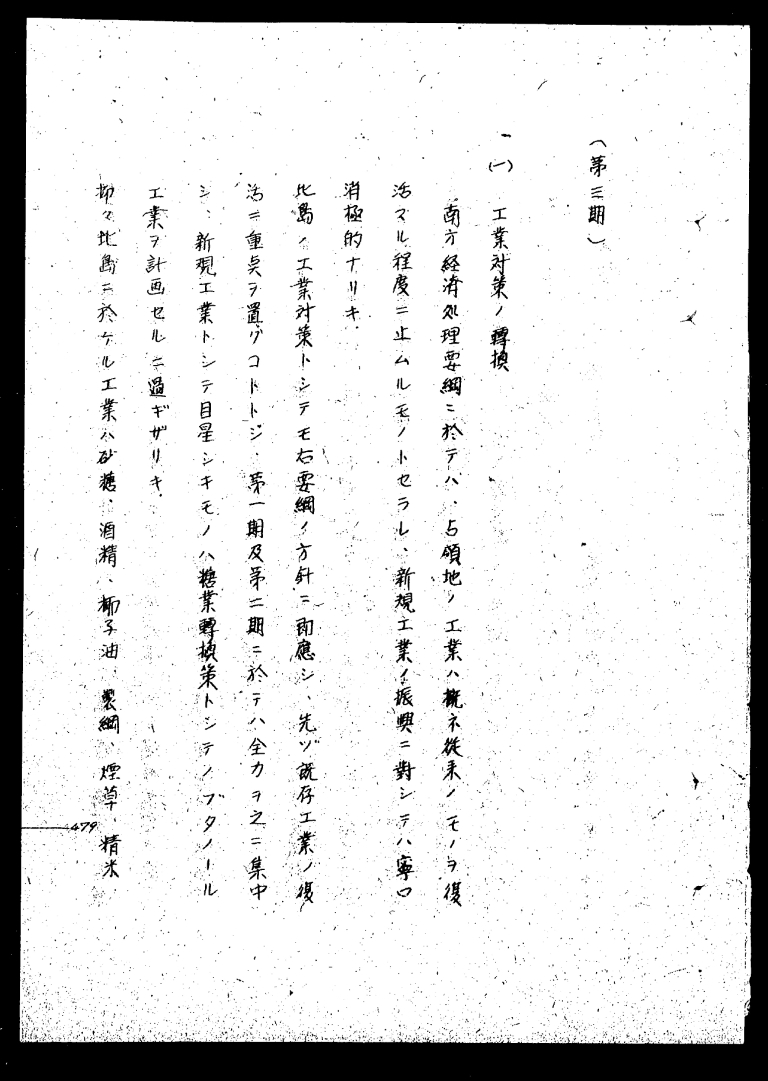 (第三期)
(一) 工業対策ノ轉換
南方経済処理要綱ニ於テハ、占領地ノ工業ハ概ネ従来ノモノヲ復
活スル程度ニ止ムルモノトセラレ、新規工業ノ振興ニ對シテハ寧ロ
消極的ナリキ、
比島ノ工業対策トシテモ右要綱ノ方針ニ即應シ、先ヅ既存工業ノ復
活ニ重点ヲ置クコトトシ、第一期及第二期ニ於テハ全力ヲ之ニ集中
シ、新規工業トシテ目星シキモノハ糖業轉換策トシテノブタノール
工業ヲ計画セルニ過ギザリキ、
抑々比島ニ於ケル工業ハ砂糖、酒精、椰子油、製綱、煙草、精米
479